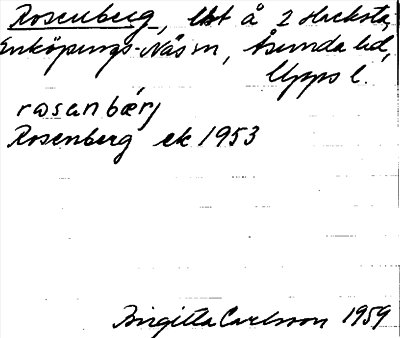 Rosenberg, lht å 2 Hacksta,
Enköpings-Näs sn, Åsunda hd,
Upps l.
rosanbærj
Rosenberg ek 1953
Birgitta Carlsson 1959